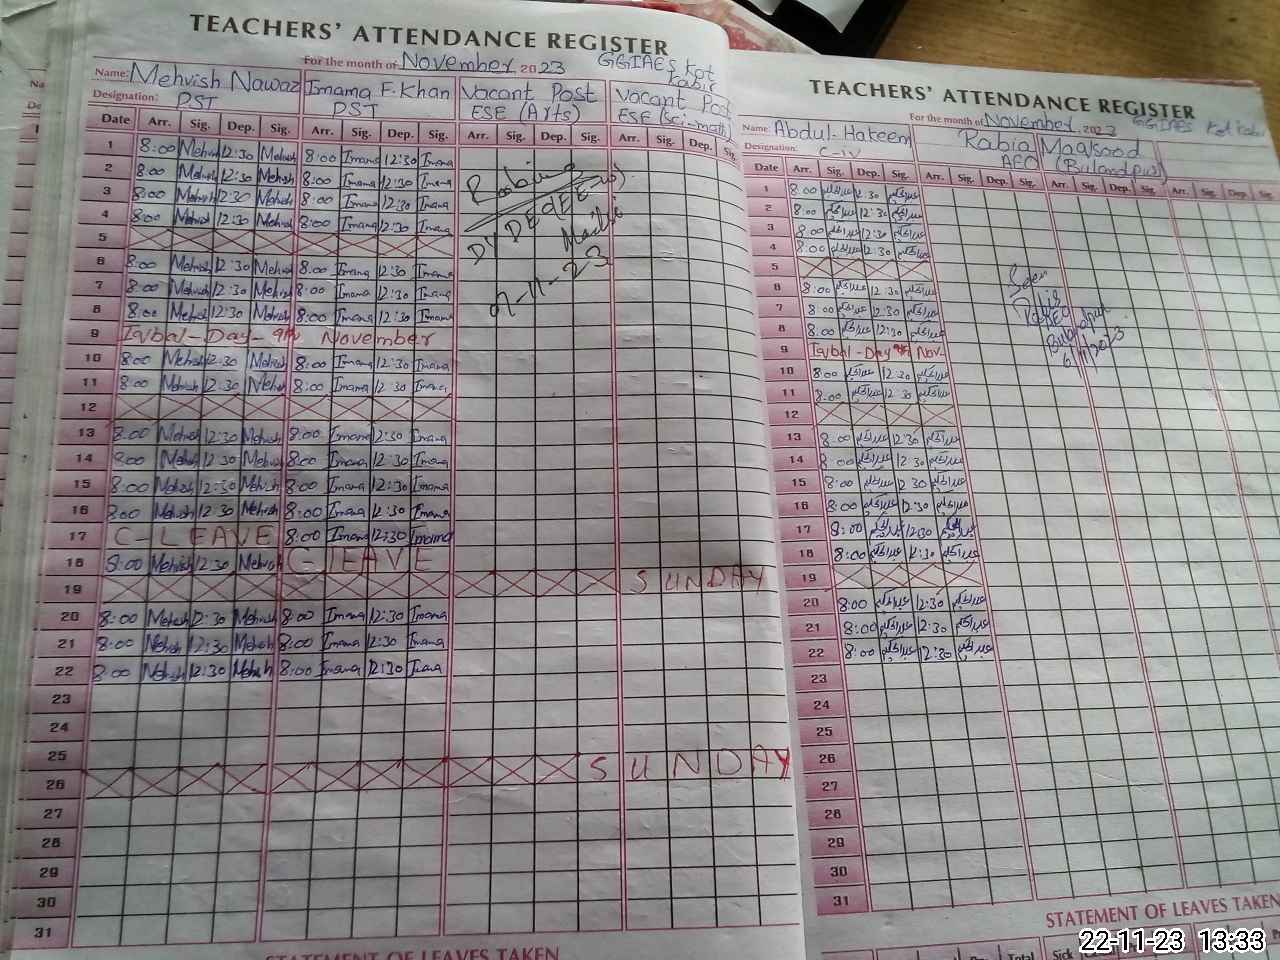 TEACHERS' ATTENDANCE REGISTER
For the month of November 2023 GGIAES Kot Kabir
Name: Mehvish Nawaz Imama F. Khan Vacant Post Vacant Post
Designation: PST PST ESE (Arts) ESE (Sci-math)
Date Arr. Sig. Dep. Sig. Arr. Sig. Dep. Sig. Arr. Sig. Dep. Sig. Arr. Sig. Dep. Sig.
1 8:00 Mehvish 12:30 Mehvish 8:00 Imama 12:30 Imama
2 8:00 Mehvish 12:30 Mehvish 8:00 Imama 12:30 Imama
3 8:00 Mehvish 12:30 Mehvish 8:00 Imama 12:30 Imama
4 8:00 Mehvish 12:30 Mehvish 8:00 Imama 12:30 Imama
5
6 8:00 Mehvish 12:30 Mehvish 8:00 Imama 12:30 Imama
7 8:00 Mehvish 12:30 Mehvish 8:00 Imama 12:30 Imama
8 8:00 Mehvish 12:30 Mehvish 8:00 Imama 12:30 Imama
9 Iqbal-Day-9th November
10 8:00 Mehvish 12:30 Mehvish 8:00 Imama 12:30 Imama
11 8:00 Mehvish 12:30 Mehvish 8:00 Imama 12:30 Imama
12
13 8:00 Mehvish 12:30 Mehvish 8:00 Imama 12:30 Imama
14 8:00 Mehvish 12:30 Mehvish 8:00 Imama 12:30 Imama
15 8:00 Mehvish 12:30 Mehvish 8:00 Imama 12:30 Imama
16 8:00 Mehvish 12:30 Mehvish 8:00 Imama 12:30 Imama
17 C-LEAVE 8:00 Imama 12:30 Imama
18 8:00 Mehvish 12:30 Mehvish C-LEAVE
19 SUNDAY
20 8:00 Mehvish 12:30 Mehvish 8:00 Imama 12:30 Imama
21 8:00 Mehvish 12:30 Mehvish 8:00 Imama 12:30 Imama
22 8:00 Mehvish 12:30 Mehvish 8:00 Imama 12:30 Imama
23
24
25
26 SUNDAY
27
28
29
30
31
DY DEO(EE-W)
Mailsi
STATEMENT OF LEAVES TAKEN
TEACHERS' ATTENDANCE REGISTER
For the month of November 2023 GGIAES Kot Kabir
Name: Abdul-Hakeem Rabia Maqsood
Designation: C-IV AEO (Bulandpur)
Date Arr. Sig. Dep. Sig. Arr. Sig. Dep. Sig. Arr. Sig. Dep. Sig. Arr. Sig.
1 8:00 عبدالحکیم 12:30 عبدالحکیم
2 8:00 عبدالحکیم 12:30 عبدالحکیم
3 8:00 عبدالحکیم 12:30 عبدالحکیم
4 8:00 عبدالحکیم 12:30 عبدالحکیم
5
6 8:00 عبدالحکیم 12:30 عبدالحکیم
7 8:00 عبدالحکیم 12:30 عبدالحکیم
8 8:00 عبدالحکیم 12:30 عبدالحکیم
9 Iqbal-Day 9th Nov.
10 8:00 عبدالحکیم 12:30 عبدالحکیم
11 8:00 عبدالحکیم 12:30 عبدالحکیم
12
13 8:00 عبدالحکیم 12:30 عبدالحکیم
14 8:00 عبدالحکیم 12:30 عبدالحکیم
15 8:00 عبدالحکیم 12:30 عبدالحکیم
16 8:00 عبدالحکیم 12:30 عبدالحکیم
17 8:00 عبدالحکیم 12:30 عبدالحکیم
18 8:00 عبدالحکیم 12:30 عبدالحکیم
19
20 8:00 عبدالحکیم 12:30 عبدالحکیم
21 8:00 عبدالحکیم 12:30 عبدالحکیم
22 8:00 عبدالحکیم 12:30 عبدالحکیم
23
24
25
26
27
28
29
30
31
Seen
AEO
Bulandpur
6/11/2023
STATEMENT OF LEAVES TAKEN
Total Sick
22-11-23 13:33